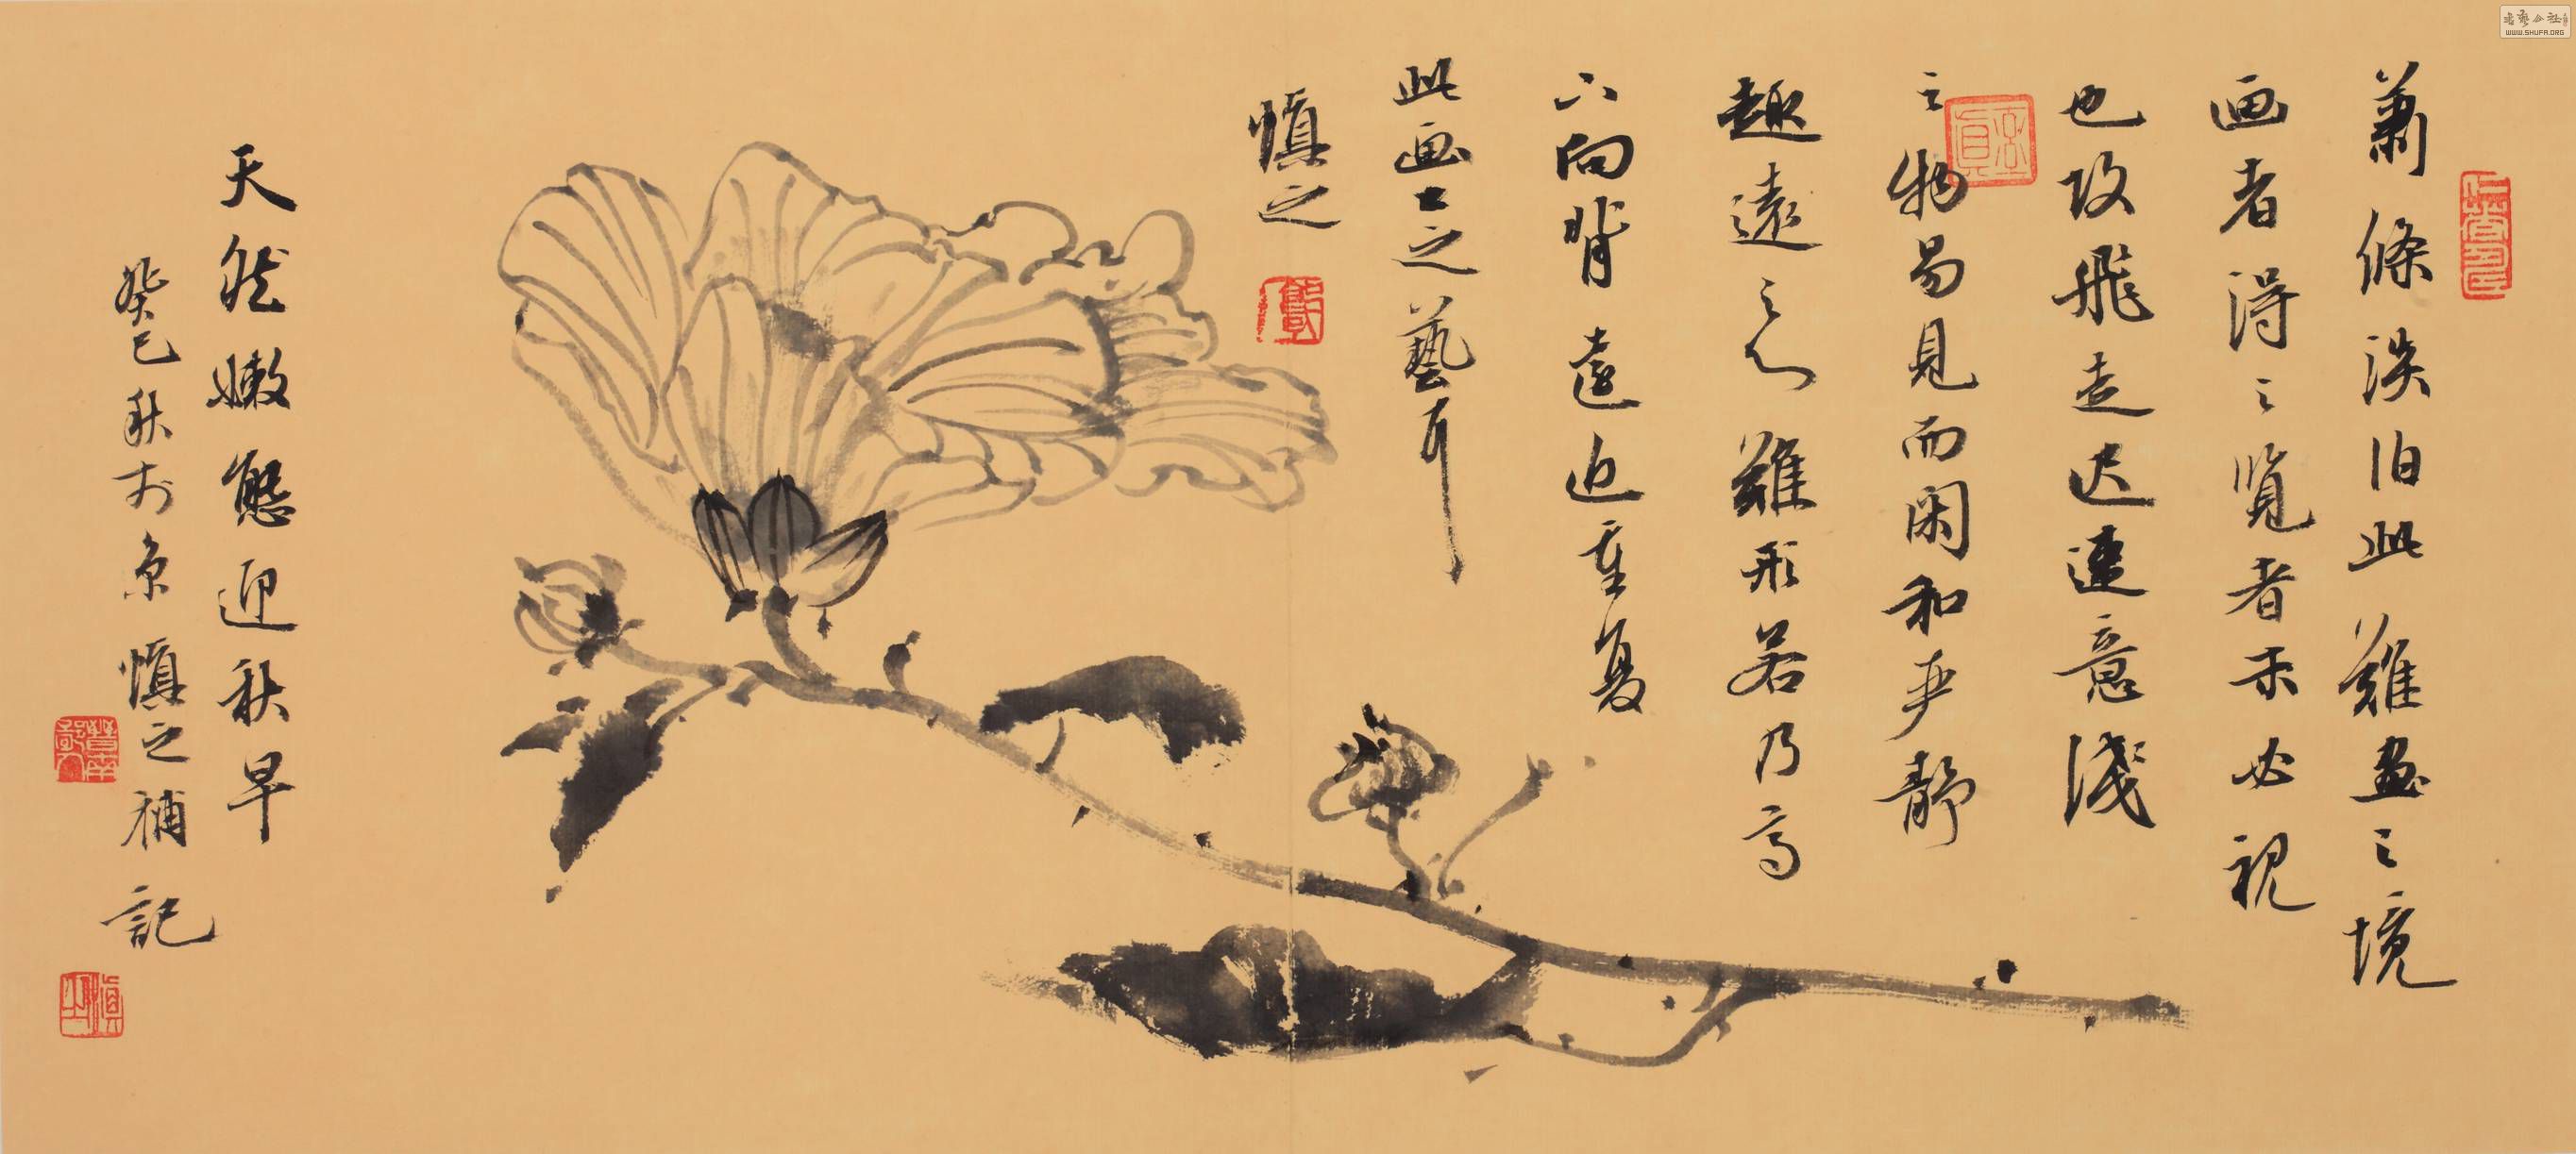 蕭條淡泊此難畫之境
画者得之覽者未必視
也故飛走迟速意淺
之物易見而闲和严靜
趣遠之心難形若乃高
下向背遠近重复
此画工之藝耳
慎之
天然嫩態迎秋早
癸巳秋於京慎之補記
慎之
书艺公社
WWW.SHUFA.ORG